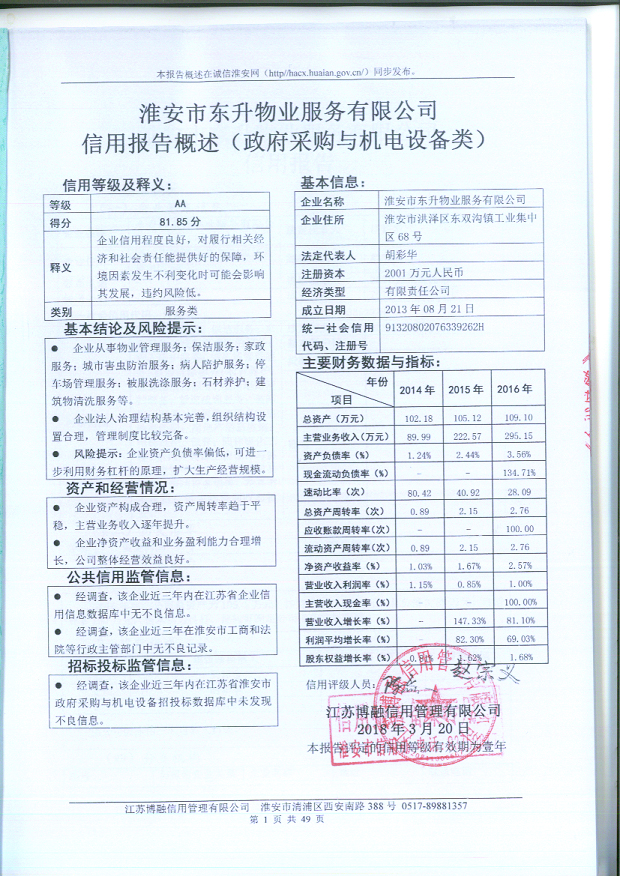 本报告概述在诚信淮安网（http//hacx.huaian.gov.cn/）同步发布。
淮安市东升物业服务有限公司
信用报告概述（政府采购与机电设备类）
信用等级及释义：
等级 AA
得分 81.85 分
释义 企业信用程度良好，对履行相关经
济和社会责任能提供好的保障，环
境因素发生不利变化时可能会影响
其发展，违约风险低。
类别 服务类
基本结论及风险提示：
● 企业从事物业管理服务；保洁服务；家政
服务；城市害虫防治服务；病人陪护服务；停
车场管理服务；被服洗涤服务；石材养护；建
筑物清洗服务等。
● 企业法人治理结构基本完善，组织结构设
置合理，管理制度比较完备。
● 风险提示：企业资产负债率偏低，可进一
步利用财务杠杆的原理，扩大生产经营规模。
资产和经营情况：
● 企业资产构成合理，资产周转率趋于平
稳，主营业务收入逐年提升。
● 企业净资产收益和业务盈利能力合理增
长，公司整体经营效益良好。
公共信用监管信息：
● 经调查，该企业近三年内在江苏省企业信
用信息数据库中无不良信息。
● 经调查，该企业近三年在淮安市工商和法
院等行政主管部门中无不良记录。
招标投标监管信息：
● 经调查，该企业近三年内在江苏省淮安市
政府采购与机电设备招投标数据库中未发现
不良信息。
基本信息：
企业名称 淮安市东升物业服务有限公司
企业住所 淮安市洪泽区东双沟镇工业集中
区 68 号
法定代表人 胡彩华
注册资本 2001 万元人民币
经济类型 有限责任公司
成立日期 2013 年 08 月 21 日
统一社会信用 91320802076339262H
代码、注册号
主要财务数据与指标：
年份
项目 2014 年 2015 年 2016 年
总资产（万元） 102.18 105.12 109.10
主营业务收入(万元) 89.99 222.57 295.15
资产负债率（%） 1.24% 2.44% 3.56%
现金流动负债率（%） - - 134.71%
速动比率（次） 80.42 40.92 28.09
总资产周转率（次） 0.89 2.15 2.76
应收账款周转率(次) - - 100.00
流动资产周转率（次） 0.89 2.15 2.76
净资产收益率（%） 1.03% 1.67% 2.57%
营业收入利润率（%） 1.15% 0.85% 1.00%
主营收入现金率（%） - - 100.00%
营业收入增长率（%） - 147.33% 81.10%
利润平均增长率（%） 82.30% 69.03%
股东权益增长率（%） 1.62% 1.68%
信用评级人员： 赵宗义
江苏博融信用管理有限公司
2018 年 3 月 20 日
本报告评定的信用等级有效期为壹年
江苏博融信用管理有限公司 淮安市清浦区西安南路 388 号 0517-89881357
第 1 页 共 49 页